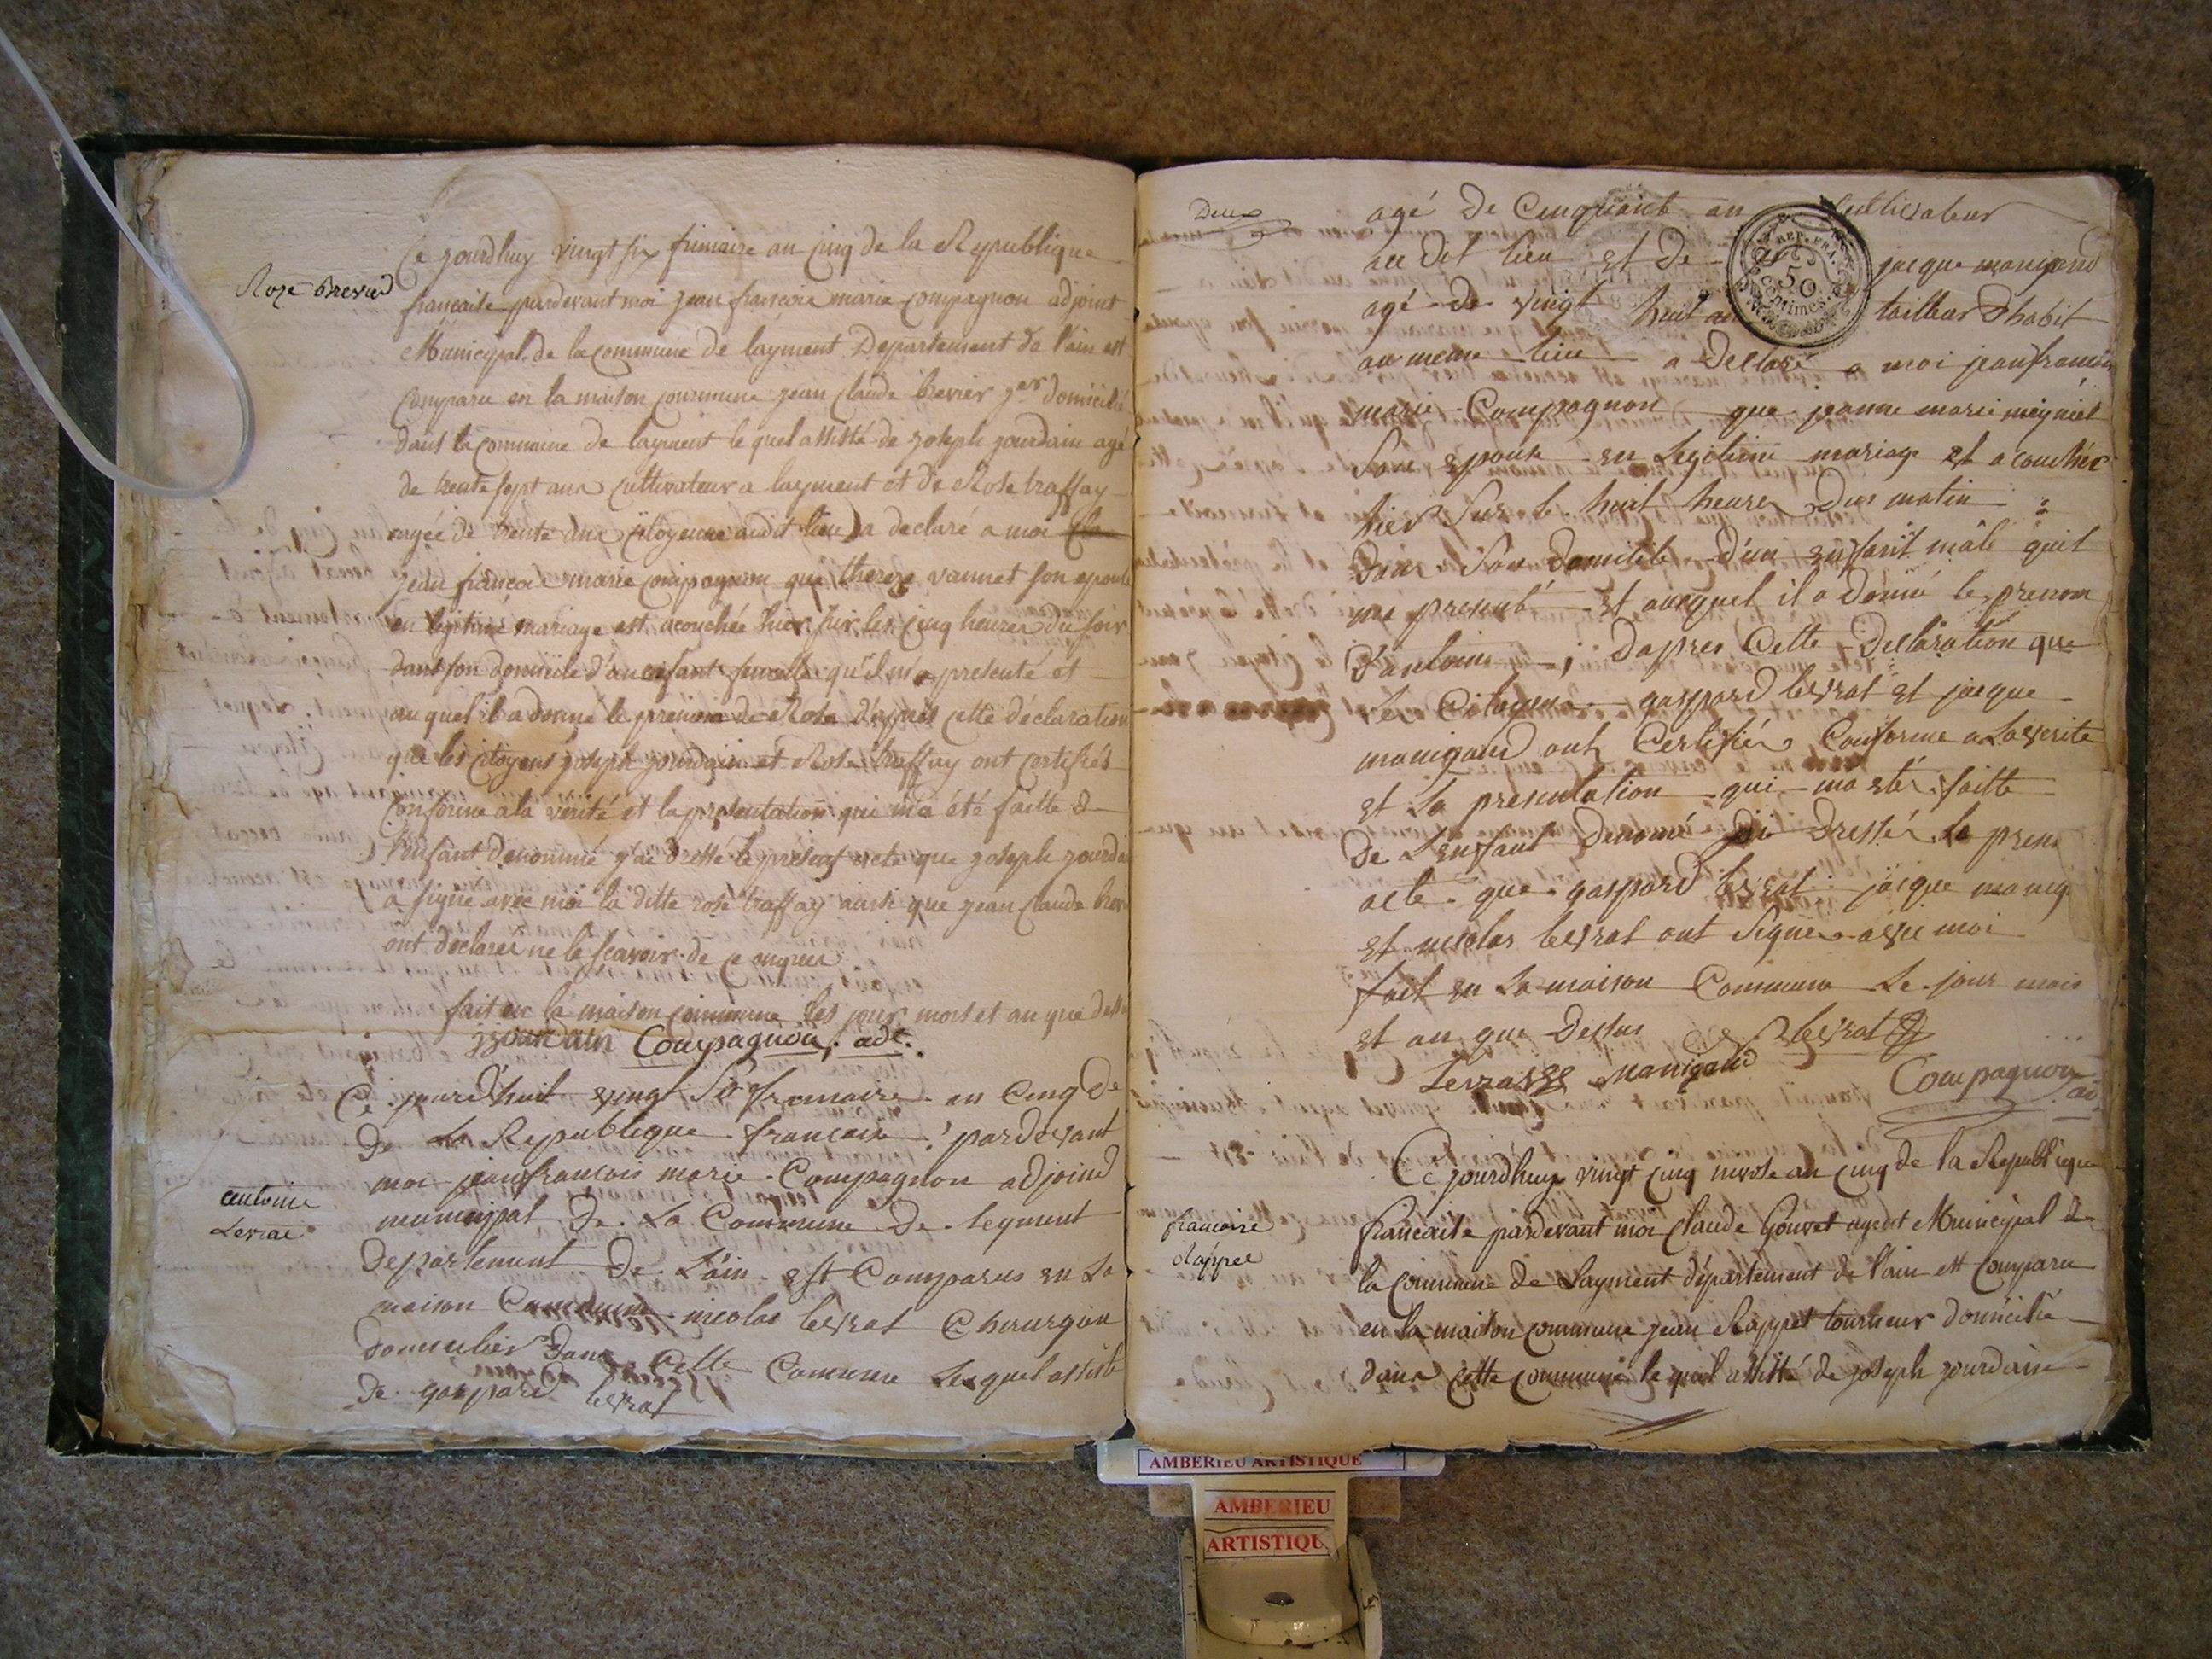 Roze brevid
Ce jourdhuy vingt six frimaire an cinq de la Republique
francaise pardevant moi jean francois marie compagnon adjoint
Municipal de la commune de layment Departement de l'ain est
comparu en la maison commune jean claude brevier domicilié
dans la commune de layment le quel assisté de joseph jourdain agé
de trente sept ans cultivateur a layment et de Rose traffay
agée de trente ans citoyenne audit lieu a declaré a moi
jean francois marie compagnon que thereze vannet son epouse
en legitime mariage est acouchée hier sur les cinq heures du soir
dans son domicile d'un enfant femelle qu'il m'a presenté et
au quel il a donné le prenom de Rose D'apprés cette déclaration
que les citoyens joseph jourdain et Rose traffay ont certifiés
conforme a la vérité et la presentation qui m'a été faitte de
l'enfant denommé j'ai dressé le present acte que joseph jourdai
a signé avec moi la ditte rose traffay ainsi que jean claude brev
ont declarer ne le scavoir de ce enquis
fait en la maison commune les jour mois et an que dessu
jourdain Compagnon, adt.
Ce jourd'huit vingt sis fremaire an Cinq de
De La Republique francaise pardevant
moi jeanfrancois marie Compagnon adjoind
meunicipal De La Commune De leyment
antoine
Levrat
Departement De L'ain est Comparus en La
maison Commune nicolas levrat Chirurgien
Domicilier Dans Cette Comune Lequel assisté
De gaspard levrat
Deux
agé De Cinquante an Cultivateur
au Dit lieu et De jacque manigand
REP. FRA.
50
Centimes
agé de vingt huit an tailleur D'habit
au meme lieu a Declaré a moi jeanfrancois
marie Compagnon que jeanne marie meyniel
Son epouse en Legitime mariage est acouchée
hier Sur le huit heures Dus matin
Dans Son Domicile D'un enfant mâle quil
ma presenté et auequel il a Donné le prenom
D'antoine ; D'apres Cette Declaration que
Les Citoyens gaspard levrat et jacque
manigand ont Certifiés Conforme a La verité
et La presentation qui ma eté faitte
De L'enfant Denomé jai Dressé Le presen
acte que gaspard levrat jacque manig
et nicolas levrat ont Signés avec moi
fait en La maison Commune Le jour mois
et an que Dessus levrat
manigand
Compagnon
ad.
Ce jourdhuy vingt cinq nivose an cinq de la Republique
francoise
Rappel
francaise pardevant moi claude Gouvet agent Municipal de
la commune de Layment département de l'ain est comparu
en la maison commune jean Rappet tourneur domicilié
dans cette commune le quel assisté de joseph jourdain
AMBERIEU ARTISTIQUE
AMBERIEU
ARTISTIQU